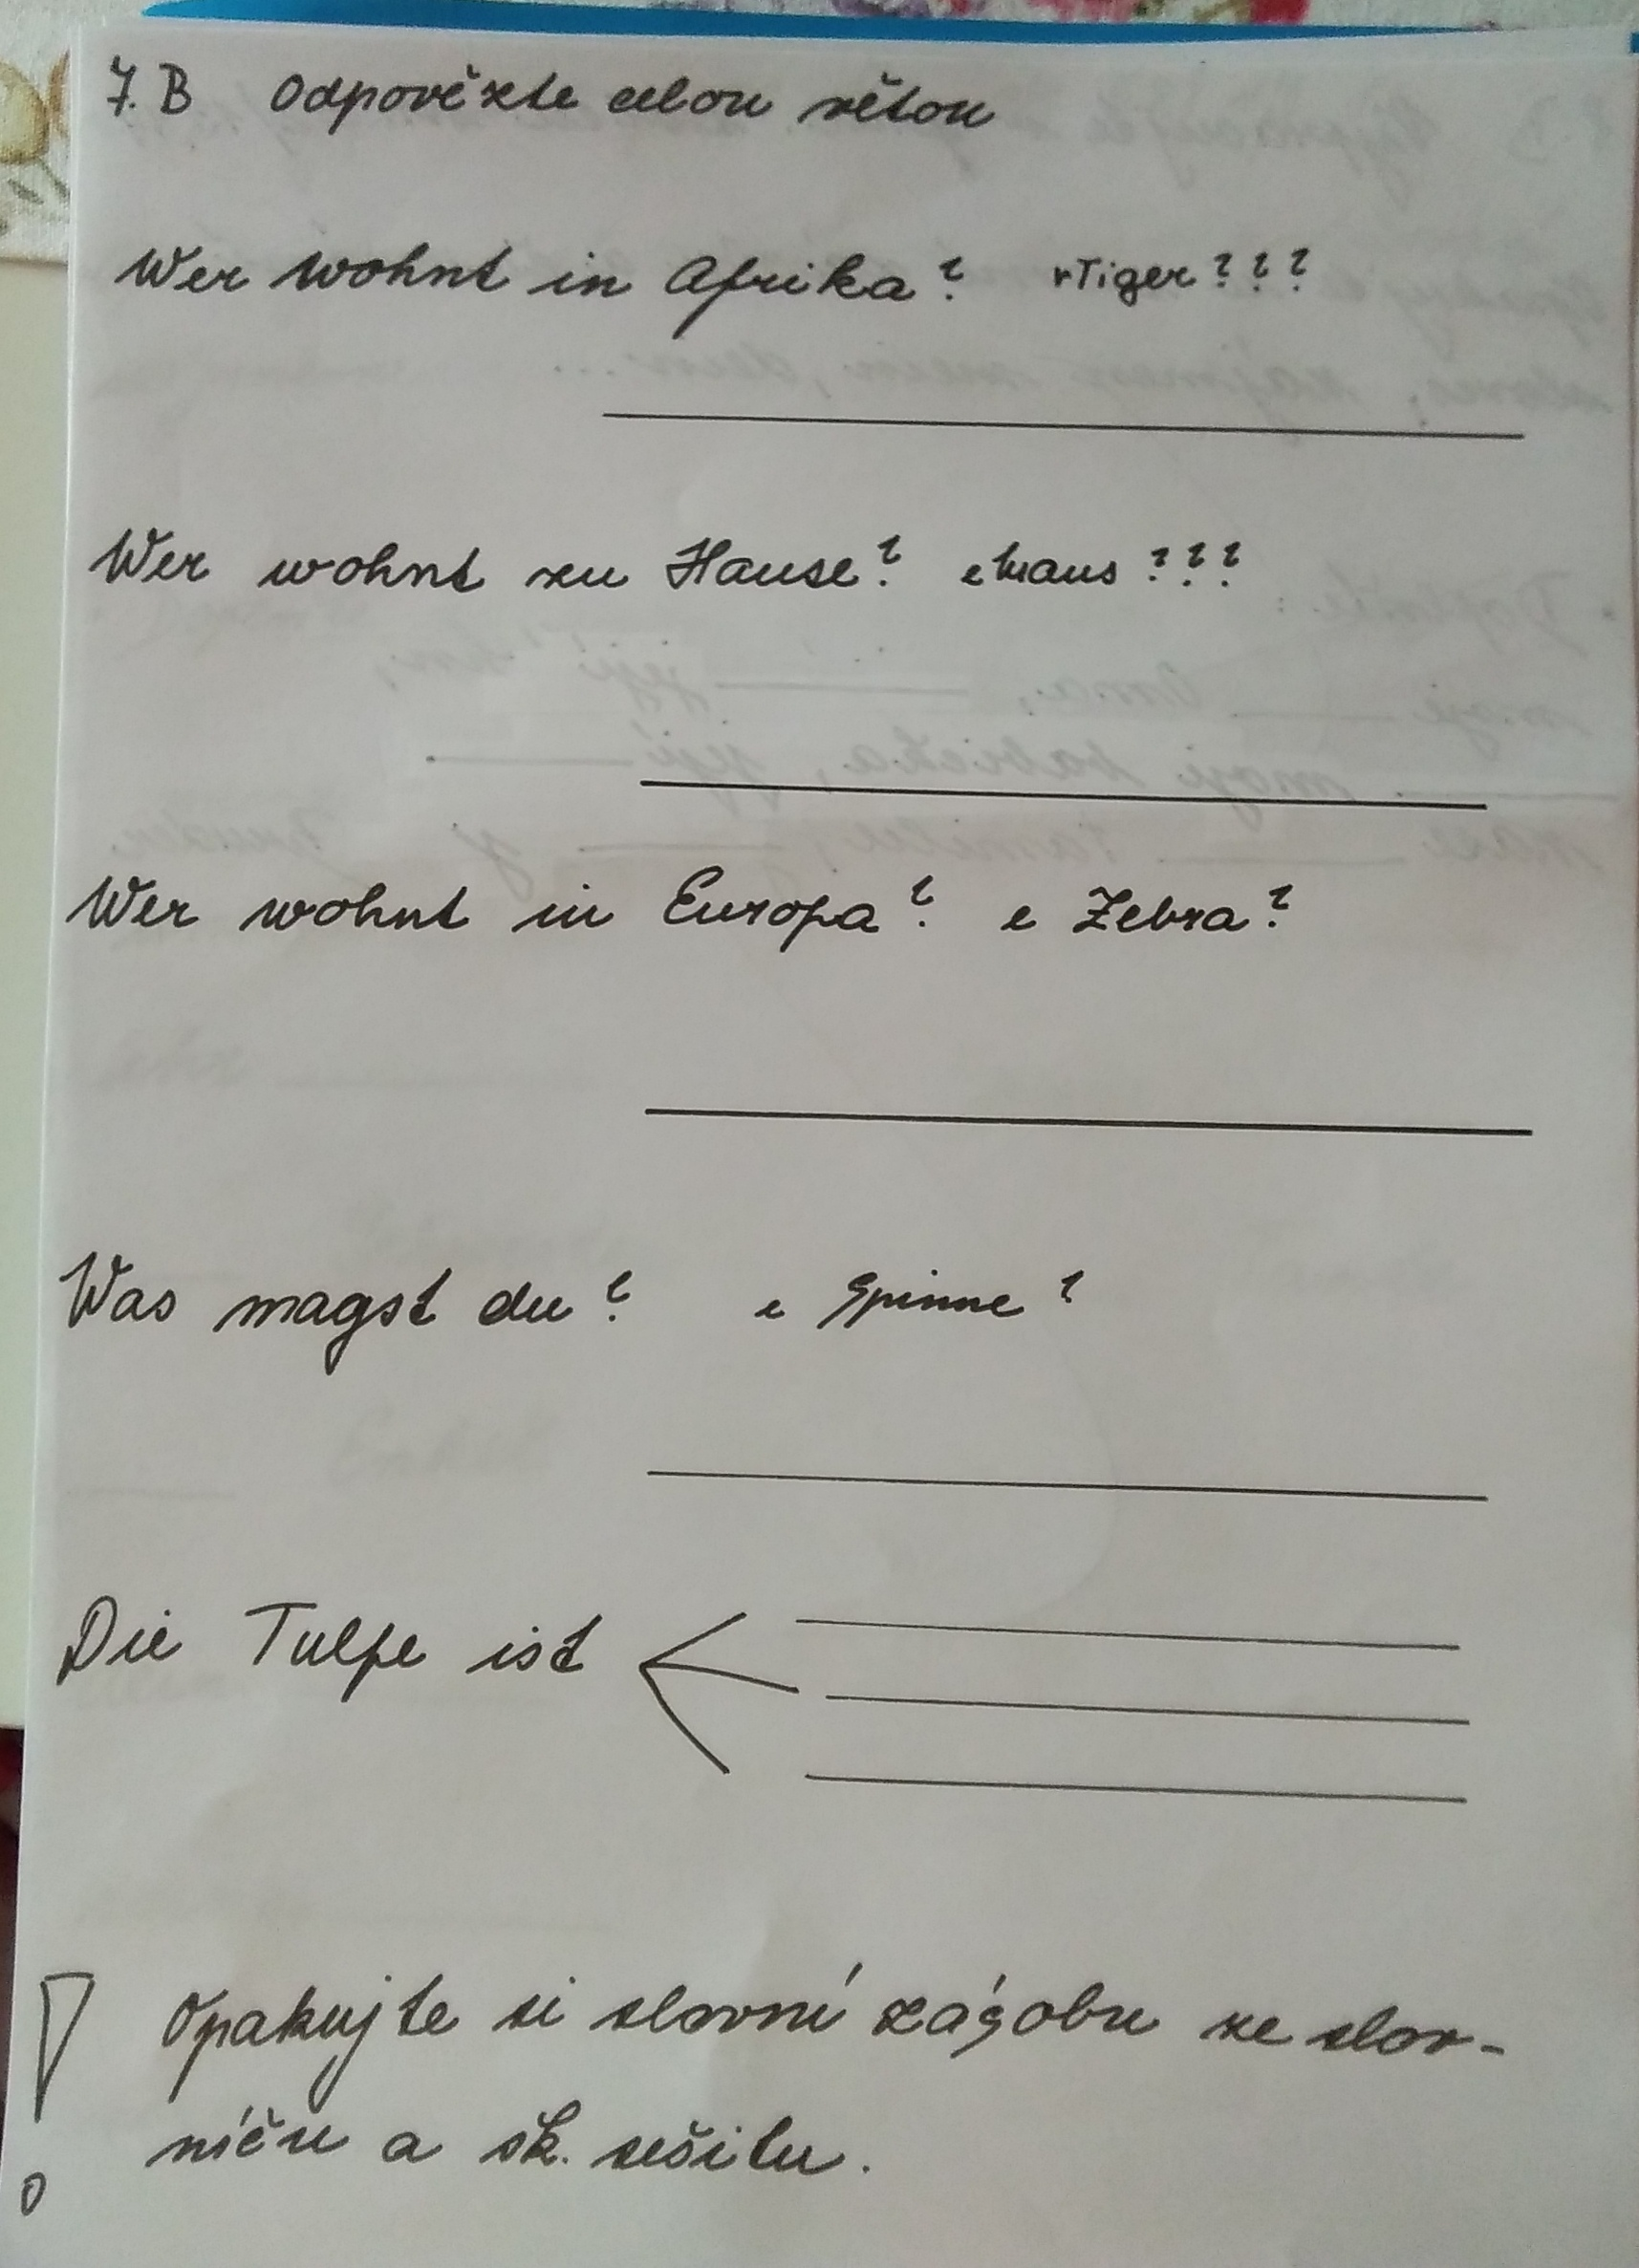 7. B Odpovězte celou větou
Wer wohnt in Afrika? r Tiger???
Wer wohnt zu Hause? e Maus???
Wer wohnt in Europa? e Zebra?
Was magst du? e Spinne?
Die Tulpe ist
! Opakujte si slovní zásobu ze slov-
níčku a šk. sešitu.